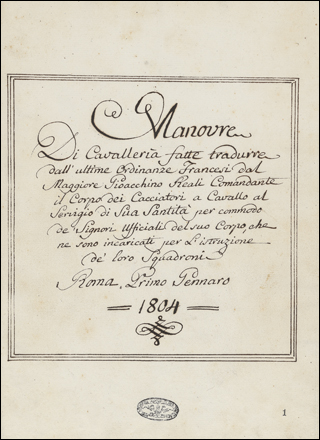 Manovre
Di Cavalleria fatte tradurre
dall' ultime Ordinanze Francesi dal
Maggiore Gioacchino Reali Comandante
il Corpo dei Cacciatori a Cavallo al
Servigio di Sua Santità per commodo
de' Signori Ufficiali del suo Corpo, che
ne sono incaricati per l'istruzione
de' loro Squadroni
Roma, Primo Gennaro
1804
1